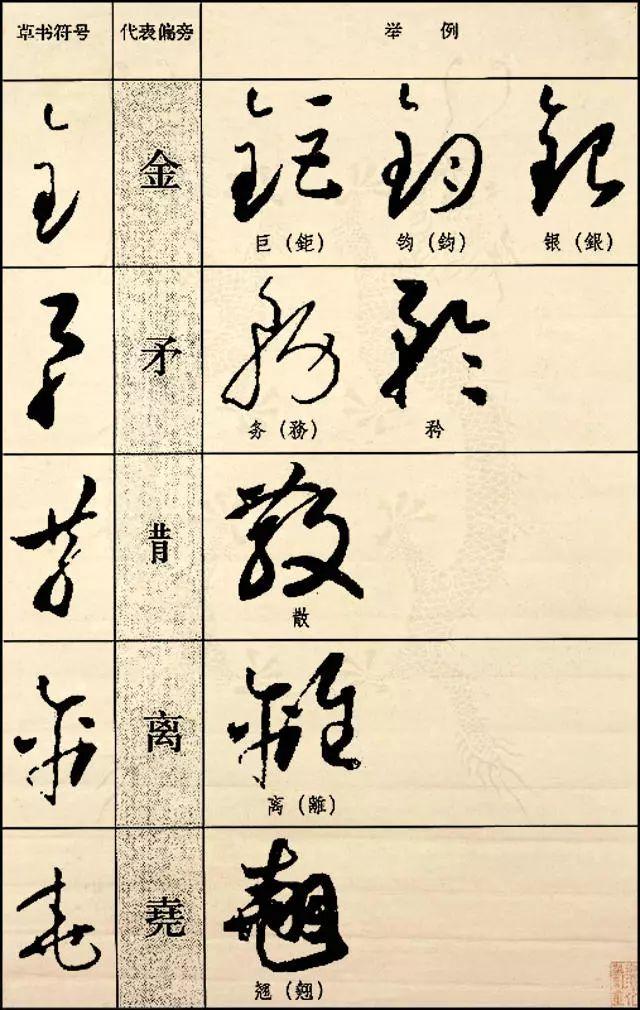 草书符号 代表偏旁 举 例
金
巨（鉅） 钧（鈞） 银（銀）
矛
务（務） 矜
散
离
离（離）
堯
翘（翹）